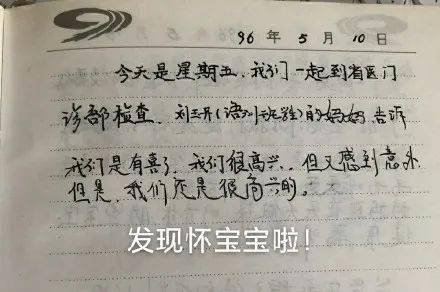 96 年 5 月 10 日
今天是星期五,我们一起到省医门
诊部检查,刘玉开(语训班)的妈妈,告诉
我们是有喜了,我们很高兴,但又感到意外
但是,我们还是很高兴的。
发现怀宝宝啦!